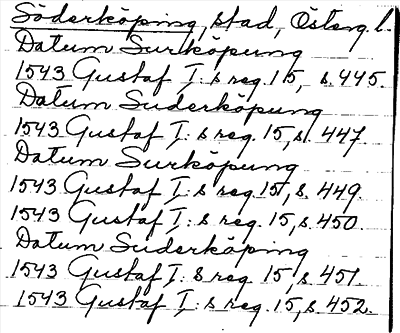 Söderköping, stad, Österg. l.
Datum Surköpung
1543 Gustaf I:s reg. 15, s. 445.
Datum Suderköpung
1543 Gustaf I:s reg. 15, s. 447.
Datum Surköpung
1543 Gustaf I:s reg. 15, s. 449.
1543 Gustaf I:s reg. 15, s. 450.
Datum Suderköping
1543 Gustaf I:s reg. 15, s. 451.
1543 Gustaf I:s reg. 15, s. 452.